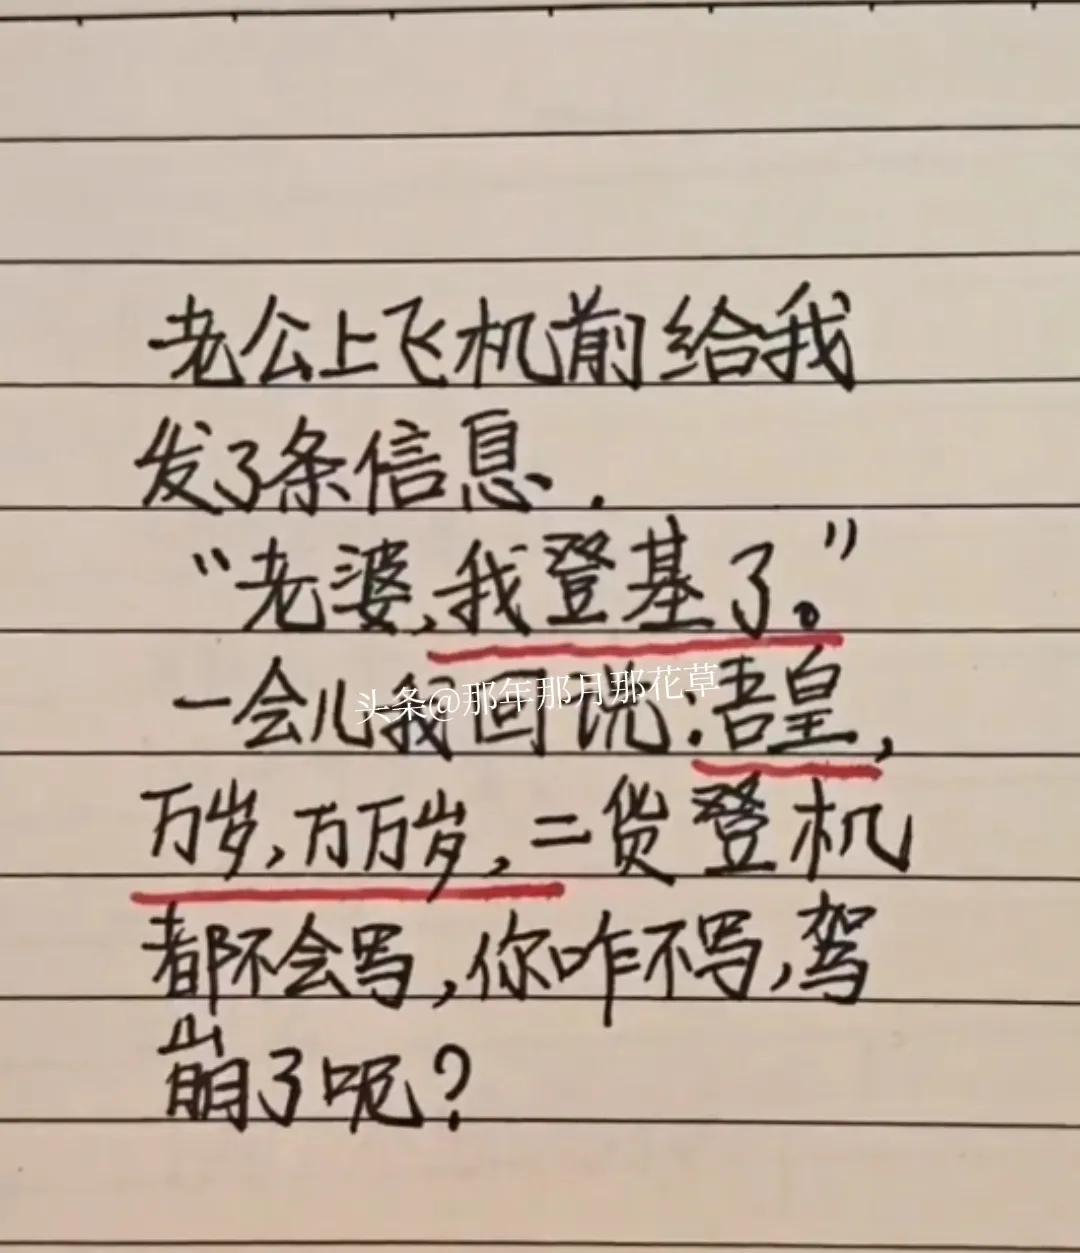 老公上飞机前给我
发了条信息.
“老婆,我登基了。”
一会儿我回说:吾皇,
头条@那年那月那花草
万岁,万万岁,二货登机
都不会写,你咋不写,驾
崩了呢?